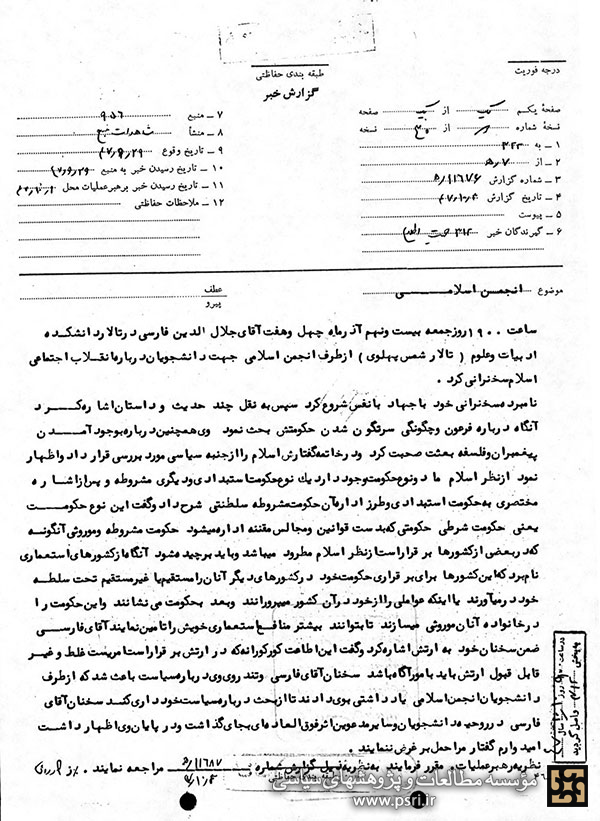 درجه فوریت
طبقه بندی حفاظتی
گزارش خبر
صفحهٔ یکم یک از یک صفحه
نسخهٔ شماره از نسخه
۱ ـ به ۳۴۲
۲ ـ از ۵ﻫ۷
۳ ـ شماره گزارش ۵/۱۱۶۷۶
۴ ـ تاریخ گزارش
۵ ـ پیوست
۶ ـ گیرندگان خبر
۷ ـ منبع ۹۵۶
۸ ـ منشأ مشاهدات منبع
۹ ـ تاریخ وقوع ۴۷/۹/۲۹
۱۰ ـ تاریخ رسیدن خبر به منبع ۴۷/۹/۲۹
۱۱ ـ تاریخ رسیدن خبر برهبر عملیات محل
۱۲ ـ ملاحظات حفاظتی
موضوع انجمن اسلامی
عطف
پیرو
ساعت ۱۹۰۰ روز جمعه بیست ونهم آذرماه چهل وهفت آقای جلال الدین فارسی در تالار دانشکده
ادبیات وعلوم ( تالار شمس پهلوی ) ازطرف انجمن اسلامی جهت دانشجویان درباره انقلاب اجتماعی
اسلام سخنرانی کرد .
نامبرده سخنرانی خود با جهاد بانفس شروع کرد سپس به نقل چند حدیث و داستان اشاره کرد
آنگاه درباره فرعون وچگونگی سرنگون شدن حکومتش بحث نمود وی همچنین درباره بوجود آمدن
پیغمبران وفلسفه بعثت صحبت کرد ودر خاتمه گفتارش اسلام را از جنبه سیاسی مورد بررسی قرار داد واظهار
نمود ازنظر اسلام ما دونوع حکومت وجود دارد یك نوع حکومت استبدادی ودیگری مشروطه و پس از اشاره
مختصری به حکومت استبدادی وطرز اداره آن حکومت مشروطه سلطنتی شرح داد وگفت این نوع حکومت
یعنی حکومت شرطی حکومتی که بدست قوانین ومجالس مقننه اداره میشود حکومت مشروطه وموروثی آنگونه
که در بعضی ازکشورها بر قرار است ازنظر اسلام مطرود میباشد وباید برچیده شود آنگاه از کشورهای استعماری
نام برد که این کشورها برای بر قراری حکومت خود در کشورهای دیگر آنان را مستقیم یا غیر مستقیم تحت سلطه
خود در میآورند یا اینکه عواملی را از خود در آن کشور میپرورانند وبعد بحکومت می نشانند واین حکومت را
در خانواده آنان موروثی میسازند تا بتوانند بیشتر منافع استعماری خویش را تامین نمایند آقای فارسی
ضمن سخنان خود به ارتش اشاره کرد وگفت این اطاعت کورکورانه که در ارتش بر قرار است مریست غلط و غیر
قابل قبول ارتش باید با مور آگاه باشد سخنان آقای فارسی وتند روی وی درباره سیاست باعث شد که ازطرف
دانشجویان انجمن اسلامی یاد داشتی بوی دادند تا از بحث درباره سیاست خود داری کند سخنان آقای
فارسی در روحیه دانشجویان وسایر مدعوین اثر فوق العاده ای بجای گذاشت ودر پایان وی اظهار داشت
امید وارم گفتار مراحمل بر غرض ننمایند .
نظریه رهبر عملیات. مقرر فرمایند به نظریه ذیل گزارش شماره ۵/۱۱۶۸۷ مراجعه نمایند .
مؤسسه مطالعات و پژوهشهای سیاسی
www.psri.ir